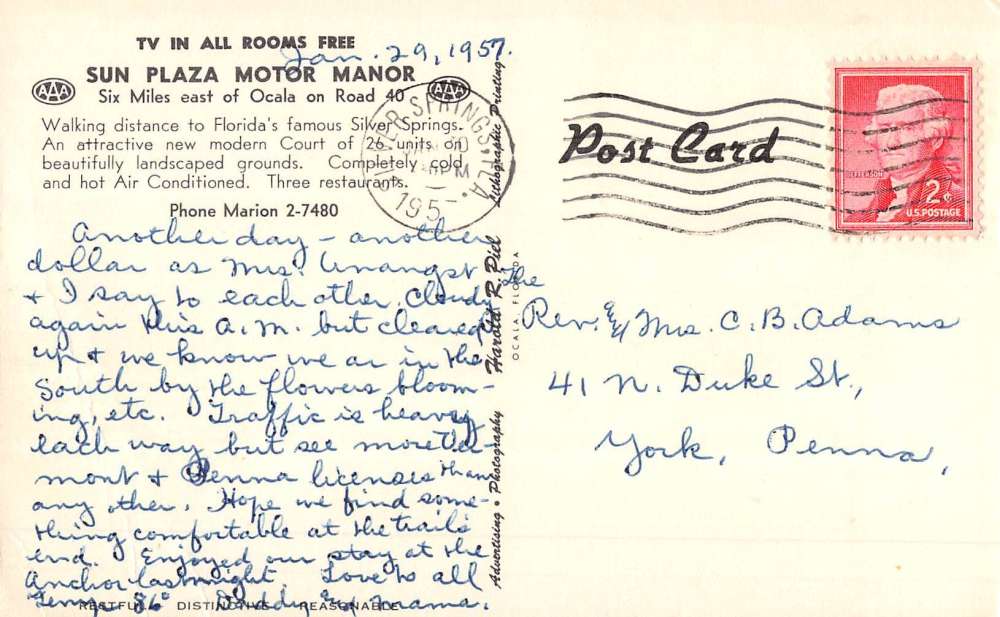 TV IN ALL ROOMS FREE
Jan. 29, 1957.
SUN PLAZA MOTOR MANOR
AAA
AAA
Six Miles east of Ocala on Road 40
Walking distance to Florida's famous Silver Springs.
An attractive new modern Court of 26 units on
beautifully landscaped grounds. Completely cold
and hot Air Conditioned. Three restaurants.
Phone Marion 2-7480
Another day - another
dollar as Mrs. Unangst
& I say to each other. Cloudy
again this A.M. but cleared
up & we know we ar in the
South by the flowers bloom-
ing, etc. Traffic is heavy
each way but see more Ver-
mont & Penna licenses than
any other. Hope we find some-
thing comfortable at the trail's
end. Enjoyed our stay at the
Anchor last night. Love to all
Temp 86° Daddy & Mama.
RESTFUL DISTINCTIVE REASONABLE
Advertising • Photography Harold R. Piel Lithographic Printing
OCALA, FLORIDA
SILVER SPRINGS, FLA.
PM
195
Post Card
JEFFERSON
2¢
U.S. POSTAGE
The
Rev. & Mrs. C. B. Adams
41 N. Duke St.,
York, Penna,